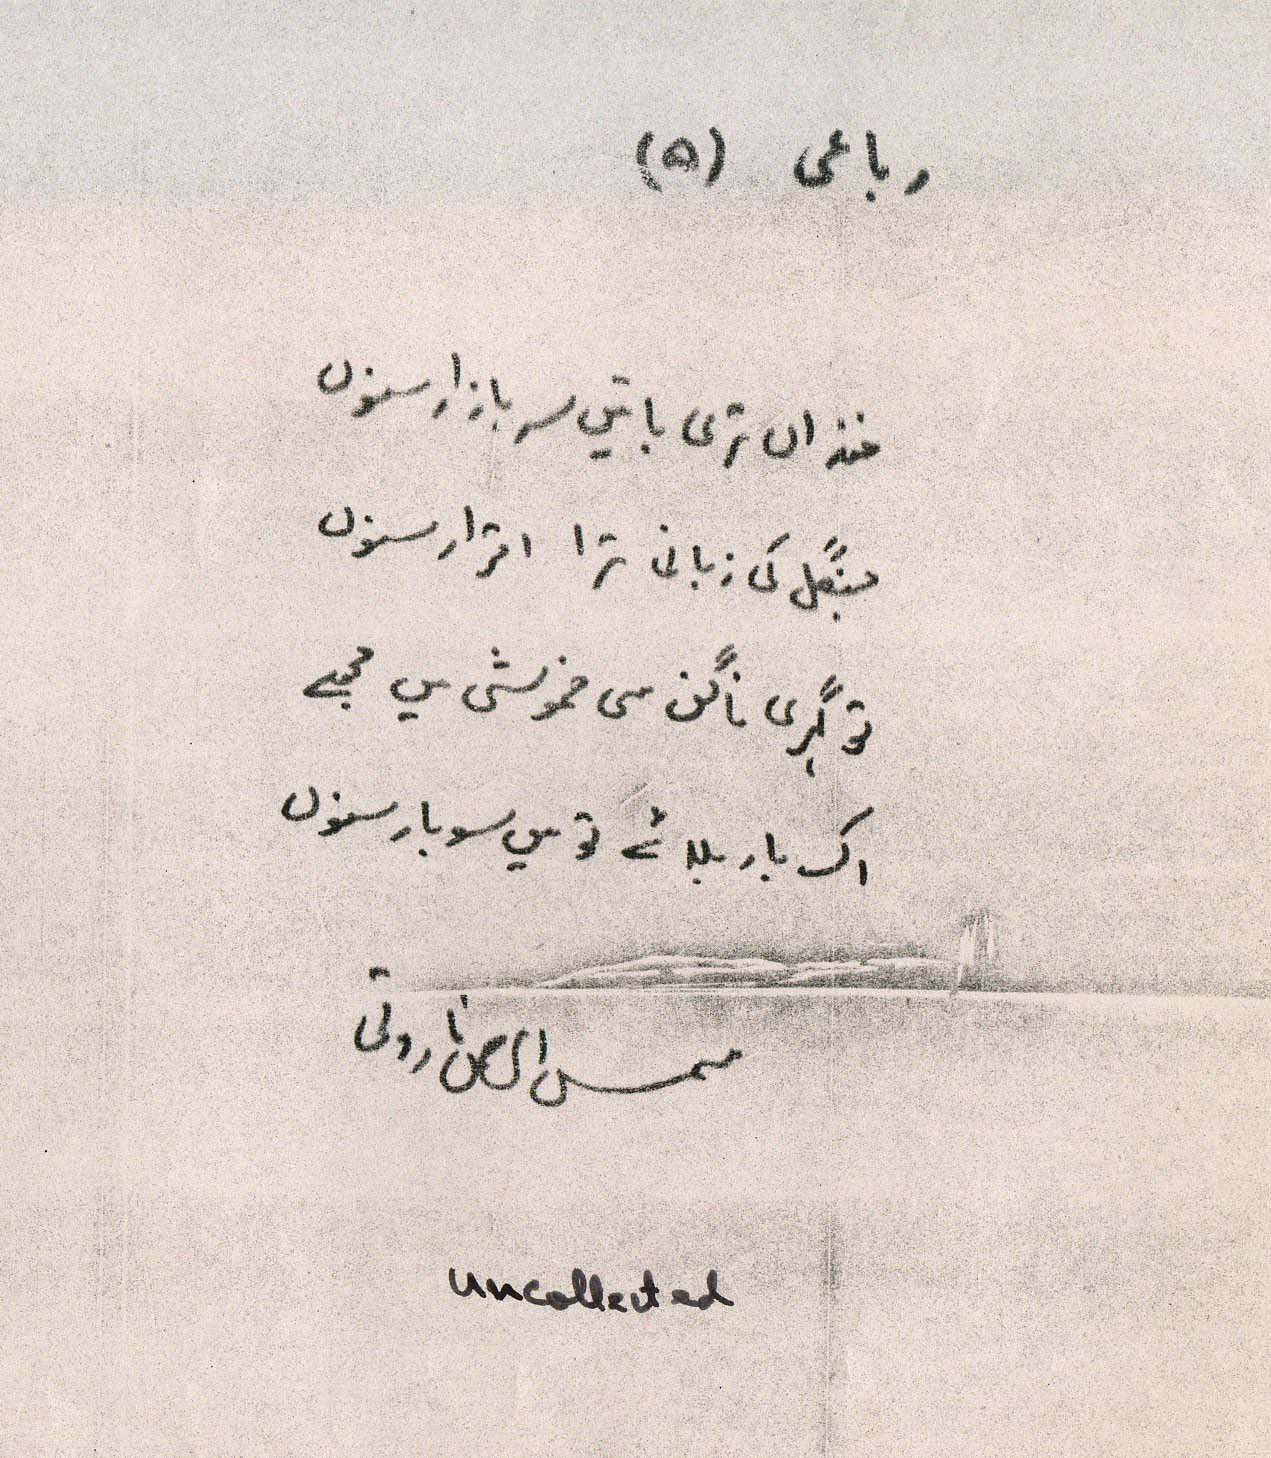 رباعی (۵)
خنداں تری باتیں سر بازار سنوں
جنگل کی زبانی ترا اقرار سنوں
تو گہری ناگن سی خموشی میں مجھے
اک بار بلائے تو میں سو بار سنوں
شمس الرحمٰن فاروقی
uncollected